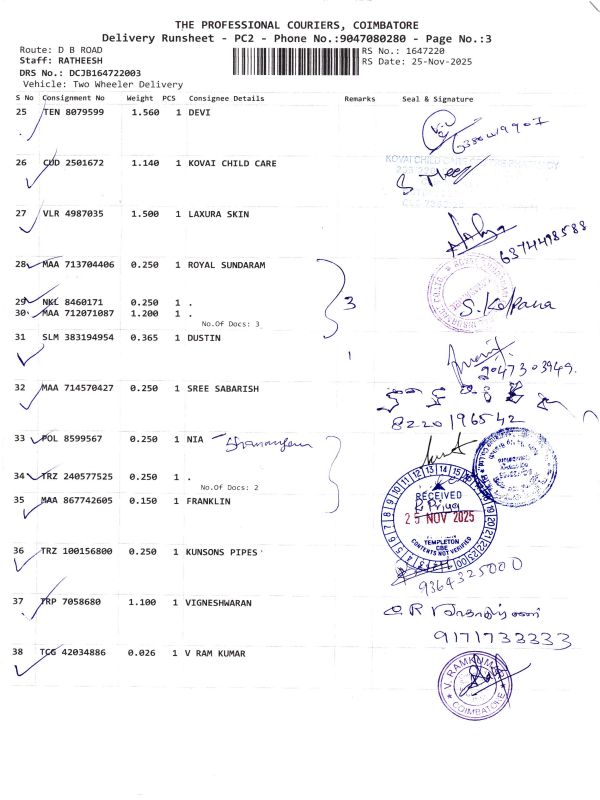 THE PROFESSIONAL COURIERS, COIMBATORE
Delivery Runsheet - PC2 - Phone No.:9047080280 - Page No.:3
Route: D B ROAD
RS No.: 1647220
Staff: RATHEESH
RS Date: 25-Nov-2025
DRS No.: DCJB164722003
Vehicle: Two Wheeler Delivery
S No Consignment No Weight PCS Consignee Details Remarks Seal & Signature
25 TEN 8079599 1.560 1 DEVI
26 CUD 2501672 1.140 1 KOVAI CHILD CARE
KOVAI CHILD CARE
27 VLR 4987035 1.500 1 LAXURA SKIN
6374498588
28 MAA 713704406 0.250 1 ROYAL SUNDARAM
29 NKL 8460171 0.250 1 .
3
S. Kalpana
30 MAA 712071087 1.200 1 .
No.Of Docs: 3
31 SLM 383194954 0.365 1 DUSTIN
1
9047303949.
32 MAA 714570427 0.250 1 SREE SABARISH
8220196542
33 POL 8599567 0.250 1 NIA
34 TRZ 240577525 0.250 1 .
No.Of Docs: 2
35 MAA 867742605 0.150 1 FRANKLIN
RECEIVED
Priya
25 NOV 2025
TEMPLETON
CBE
CONTENTS NOT VERIFIED
36 TRZ 100156800 0.250 1 KUNSONS PIPES
9364325000
37 TRP 7058680 1.100 1 VIGNESHWARAN
9171733333
38 TCG 42034886 0.026 1 V RAM KUMAR
V. RAMKUMAR
COIMBATORE